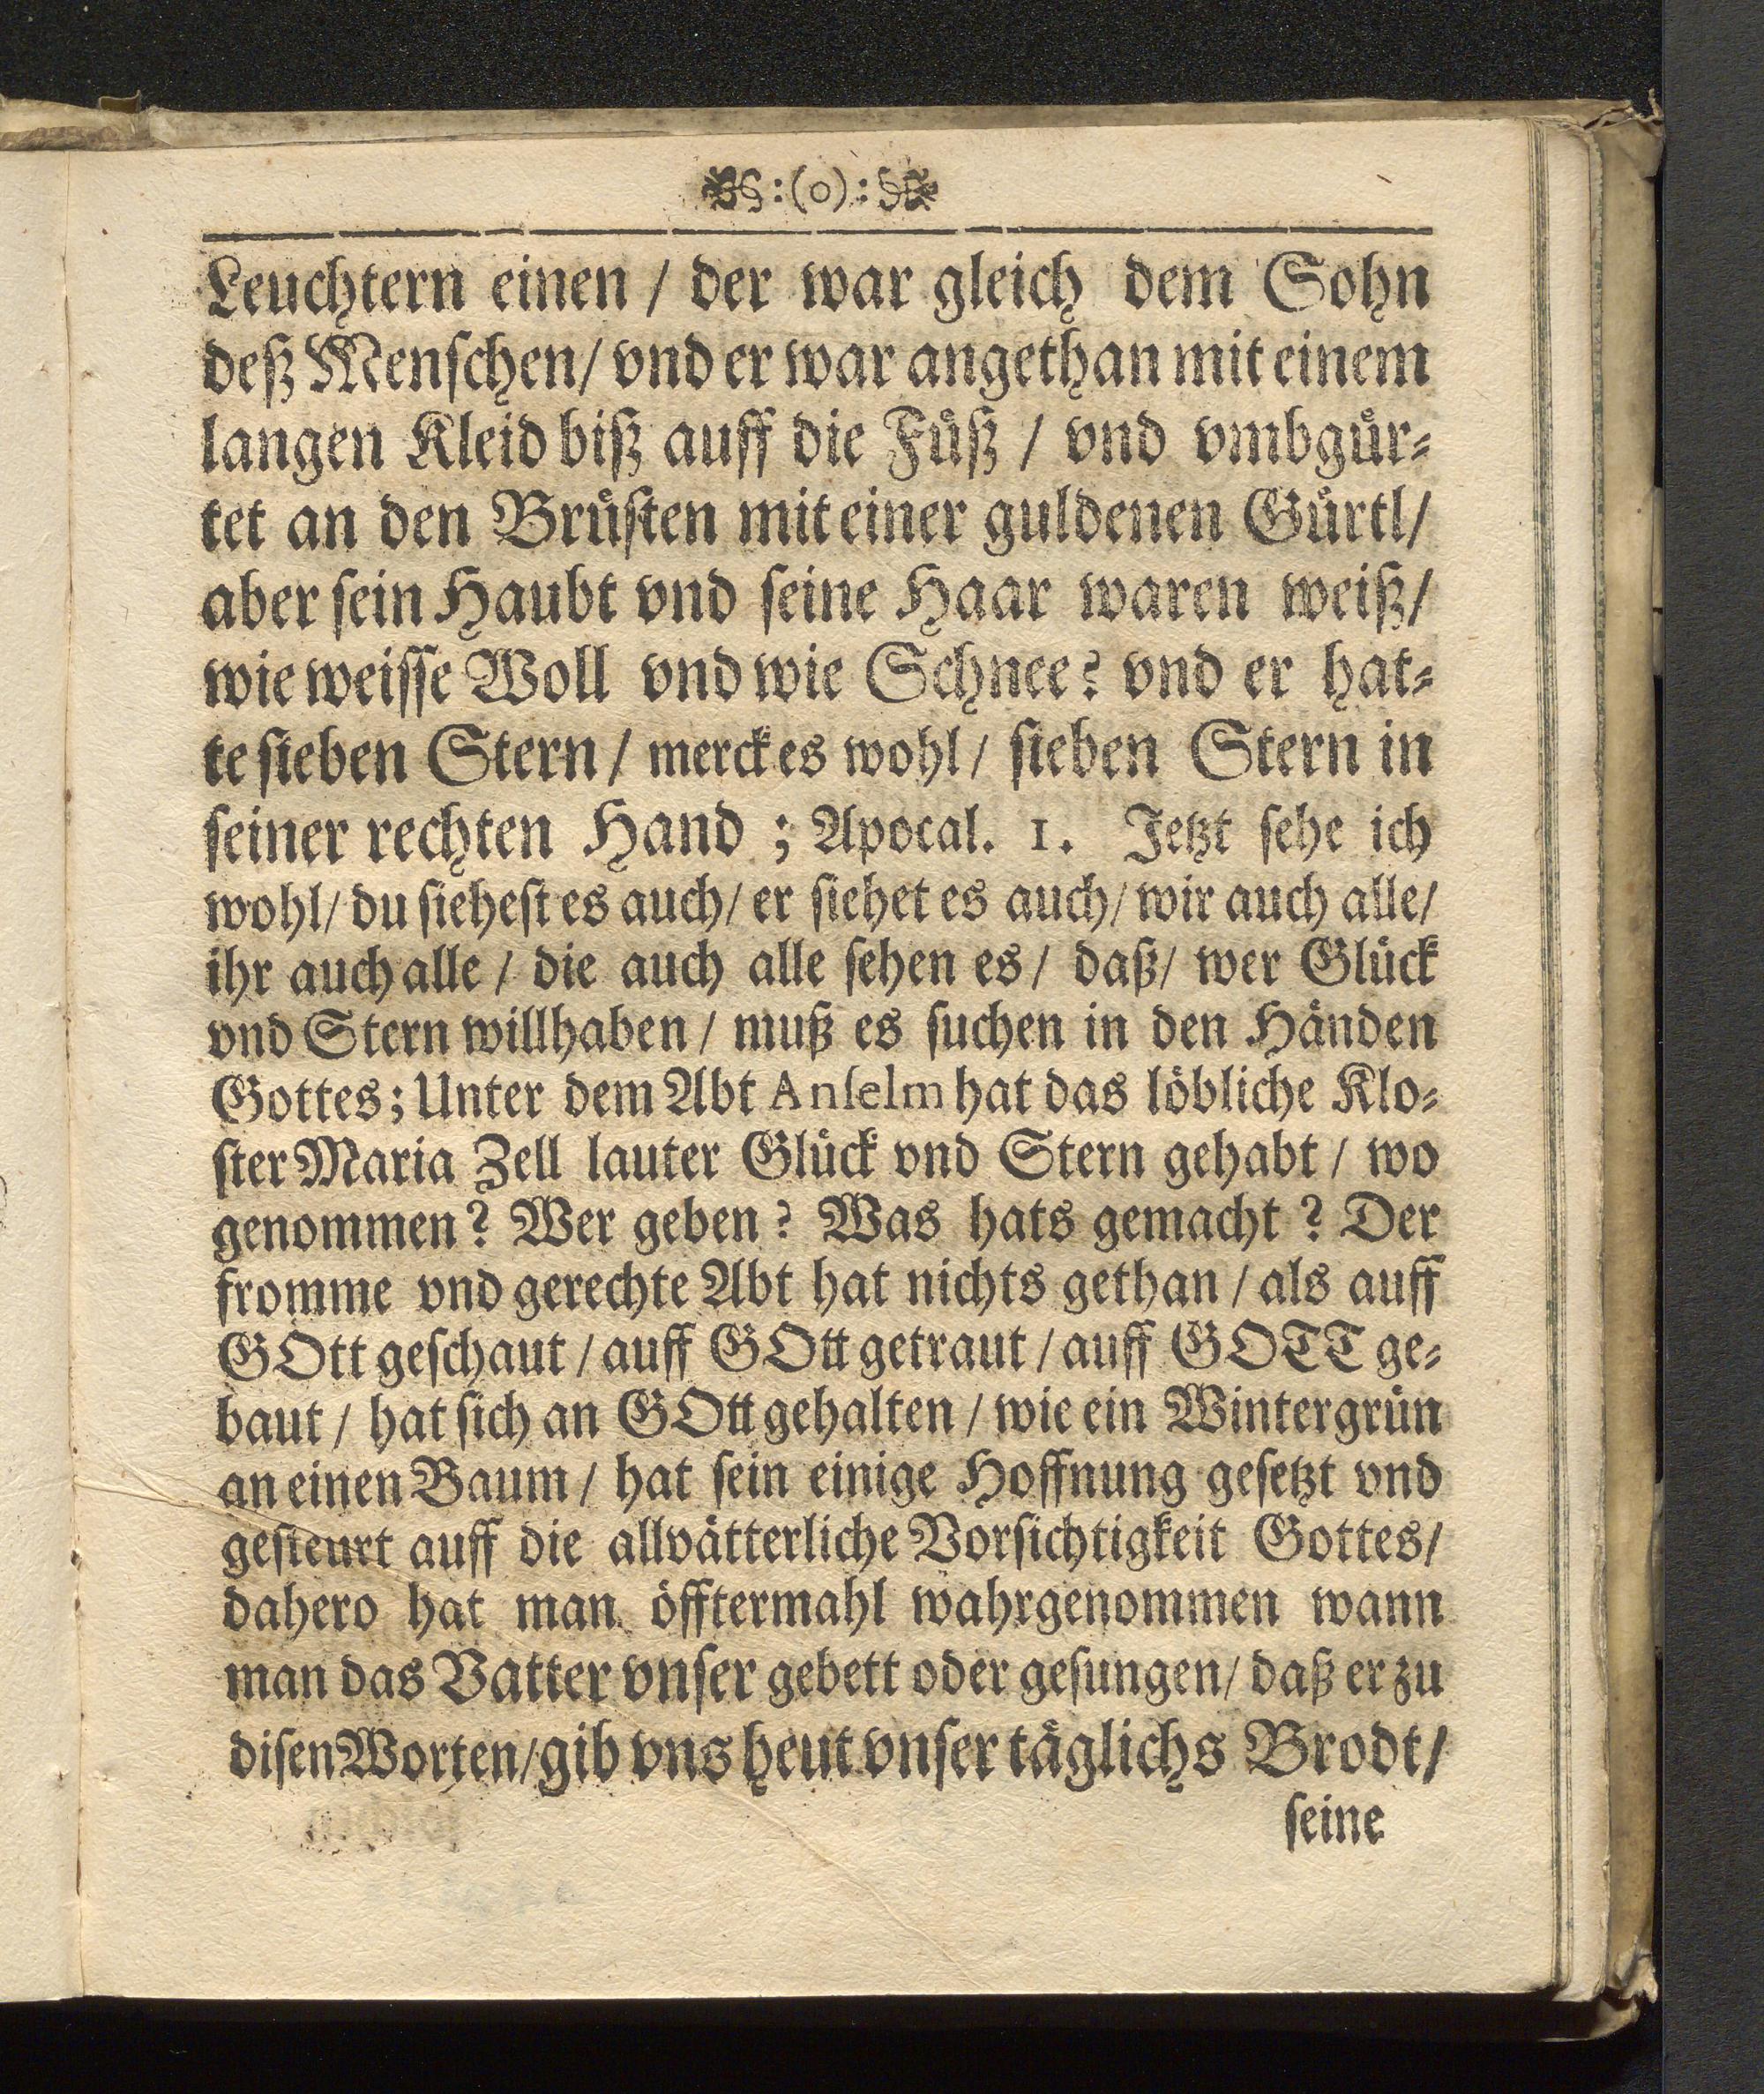 :(0):
Leuchtern einen / der war gleich dem Sohn
deß Menſchen/ vnd er war angethan mit einem
langen Kleid biß auff die Fuͤß / vnd vmbguͤr⸗
tet an den Bruͤſten mit einer guldenen Guͤrtl/
aber ſein Haubt vnd ſeine Haar waren weiß/
wie weiſſe Woll vnd wie Schnee? vnd er hat⸗
te ſieben Stern / merck es wohl / ſieben Stern in
ſeiner rechten Hand ; Apocal. 1. Jetzt ſehe ich
wohl/ du ſieheſt es auch/ er ſiehet es auch/ wir auch alle/
ihr auch alle / die auch alle ſehen es / daß/ wer Gluͤck
vnd Stern will haben / muß es ſuchen in den Haͤnden
Gottes; Unter dem Abt Anſelm hat das loͤbliche Klo⸗
ſter Maria Zell lauter Gluͤck vnd Stern gehabt / wo
genommen? Wer geben? Was hats gemacht? Der
fromme vnd gerechte Abt hat nichts gethan / als auff
GOtt geſchaut / auff GOtt getraut / auff GOTT ge⸗
baut / hat ſich an GOtt gehalten / wie ein Wintergruͤn
an einen Baum / hat ſein einige Hoffnung geſetzt vnd
geſteurt auff die allvaͤtterliche Vorſichtigkeit Gottes/
dahero hat man oͤfftermahl wahrgenommen wann
man das Vatter vnſer gebett oder geſungen/ daß er zu
diſen Worten/ gib vns heut vnſer taͤglichs Brodt/
ſeine